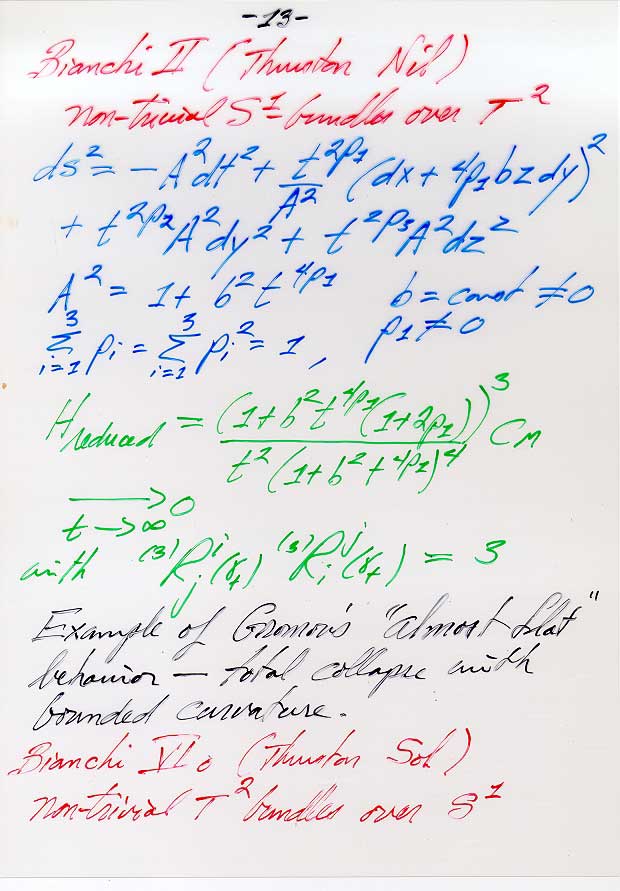 -13-
Bianchi II (Thurston Nil)
non-trivial S¹-bundles over T²
ds² = -A²dt² + t^{2p₁}/A² (dx + 4p₁bzdy)²
+ t^{2p₂}A²dy² + t^{2p₃}A²dz²
A² = 1 + b²t^{4p₁} b = const ≠ 0
∑_{i=1}^{3} pᵢ = ∑_{i=1}^{3} pᵢ² = 1, p₁ ≠ 0
H_{reduced} = (1+b²t^{4p₁}(1+2p₁))³ / t²(1+b²t^{4p₁})⁴ C_M
⟶_{t→∞} 0
with ⁽³⁾Rⁱⱼ(γₜ) ⁽³⁾Rʲᵢ(γₜ) = 3
Example of Gromov's "almost flat"
behavior — total collapse with
bounded curvature.
Bianchi VI₀ (Thurston Sol)
non-trivial T² bundles over S¹